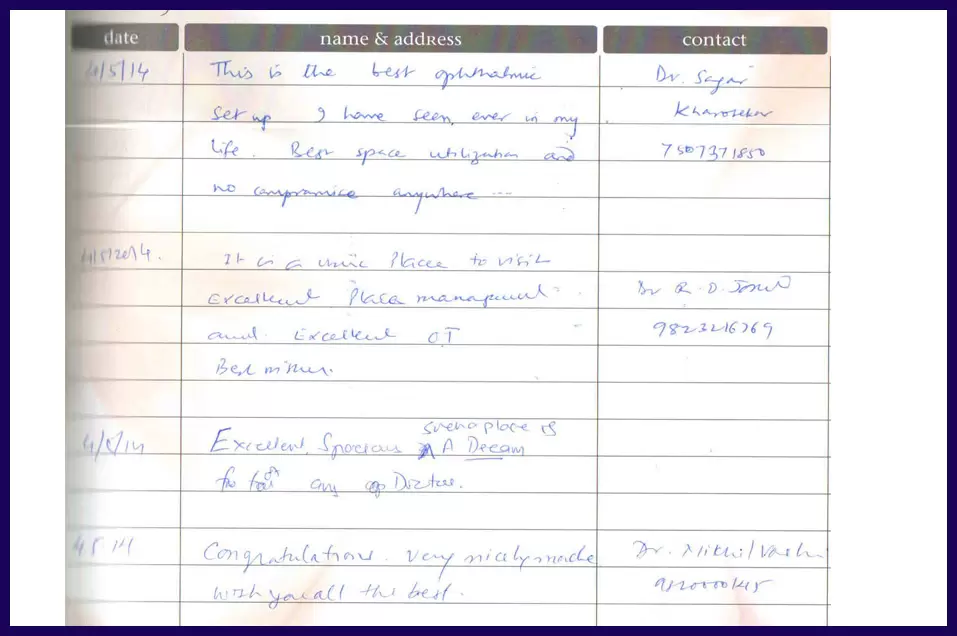 date name & address contact
4/5/14 This is the best ophthalmic Dr. Sagar
set up I have seen, ever in my Kharosekar
life. Best space utilization and 7507371850
no compromice anywhere ...
4/5/2014. It is a Place to visit
Excellent Place management Dr R. D.
and Excellent OT 9823216769
Best wishes.
such a place is
Excellent, Spacious A Dream
for any Doctor.
4 5 14 Congratulations. Very nicely made Dr. Nikhil
wish you all the best.